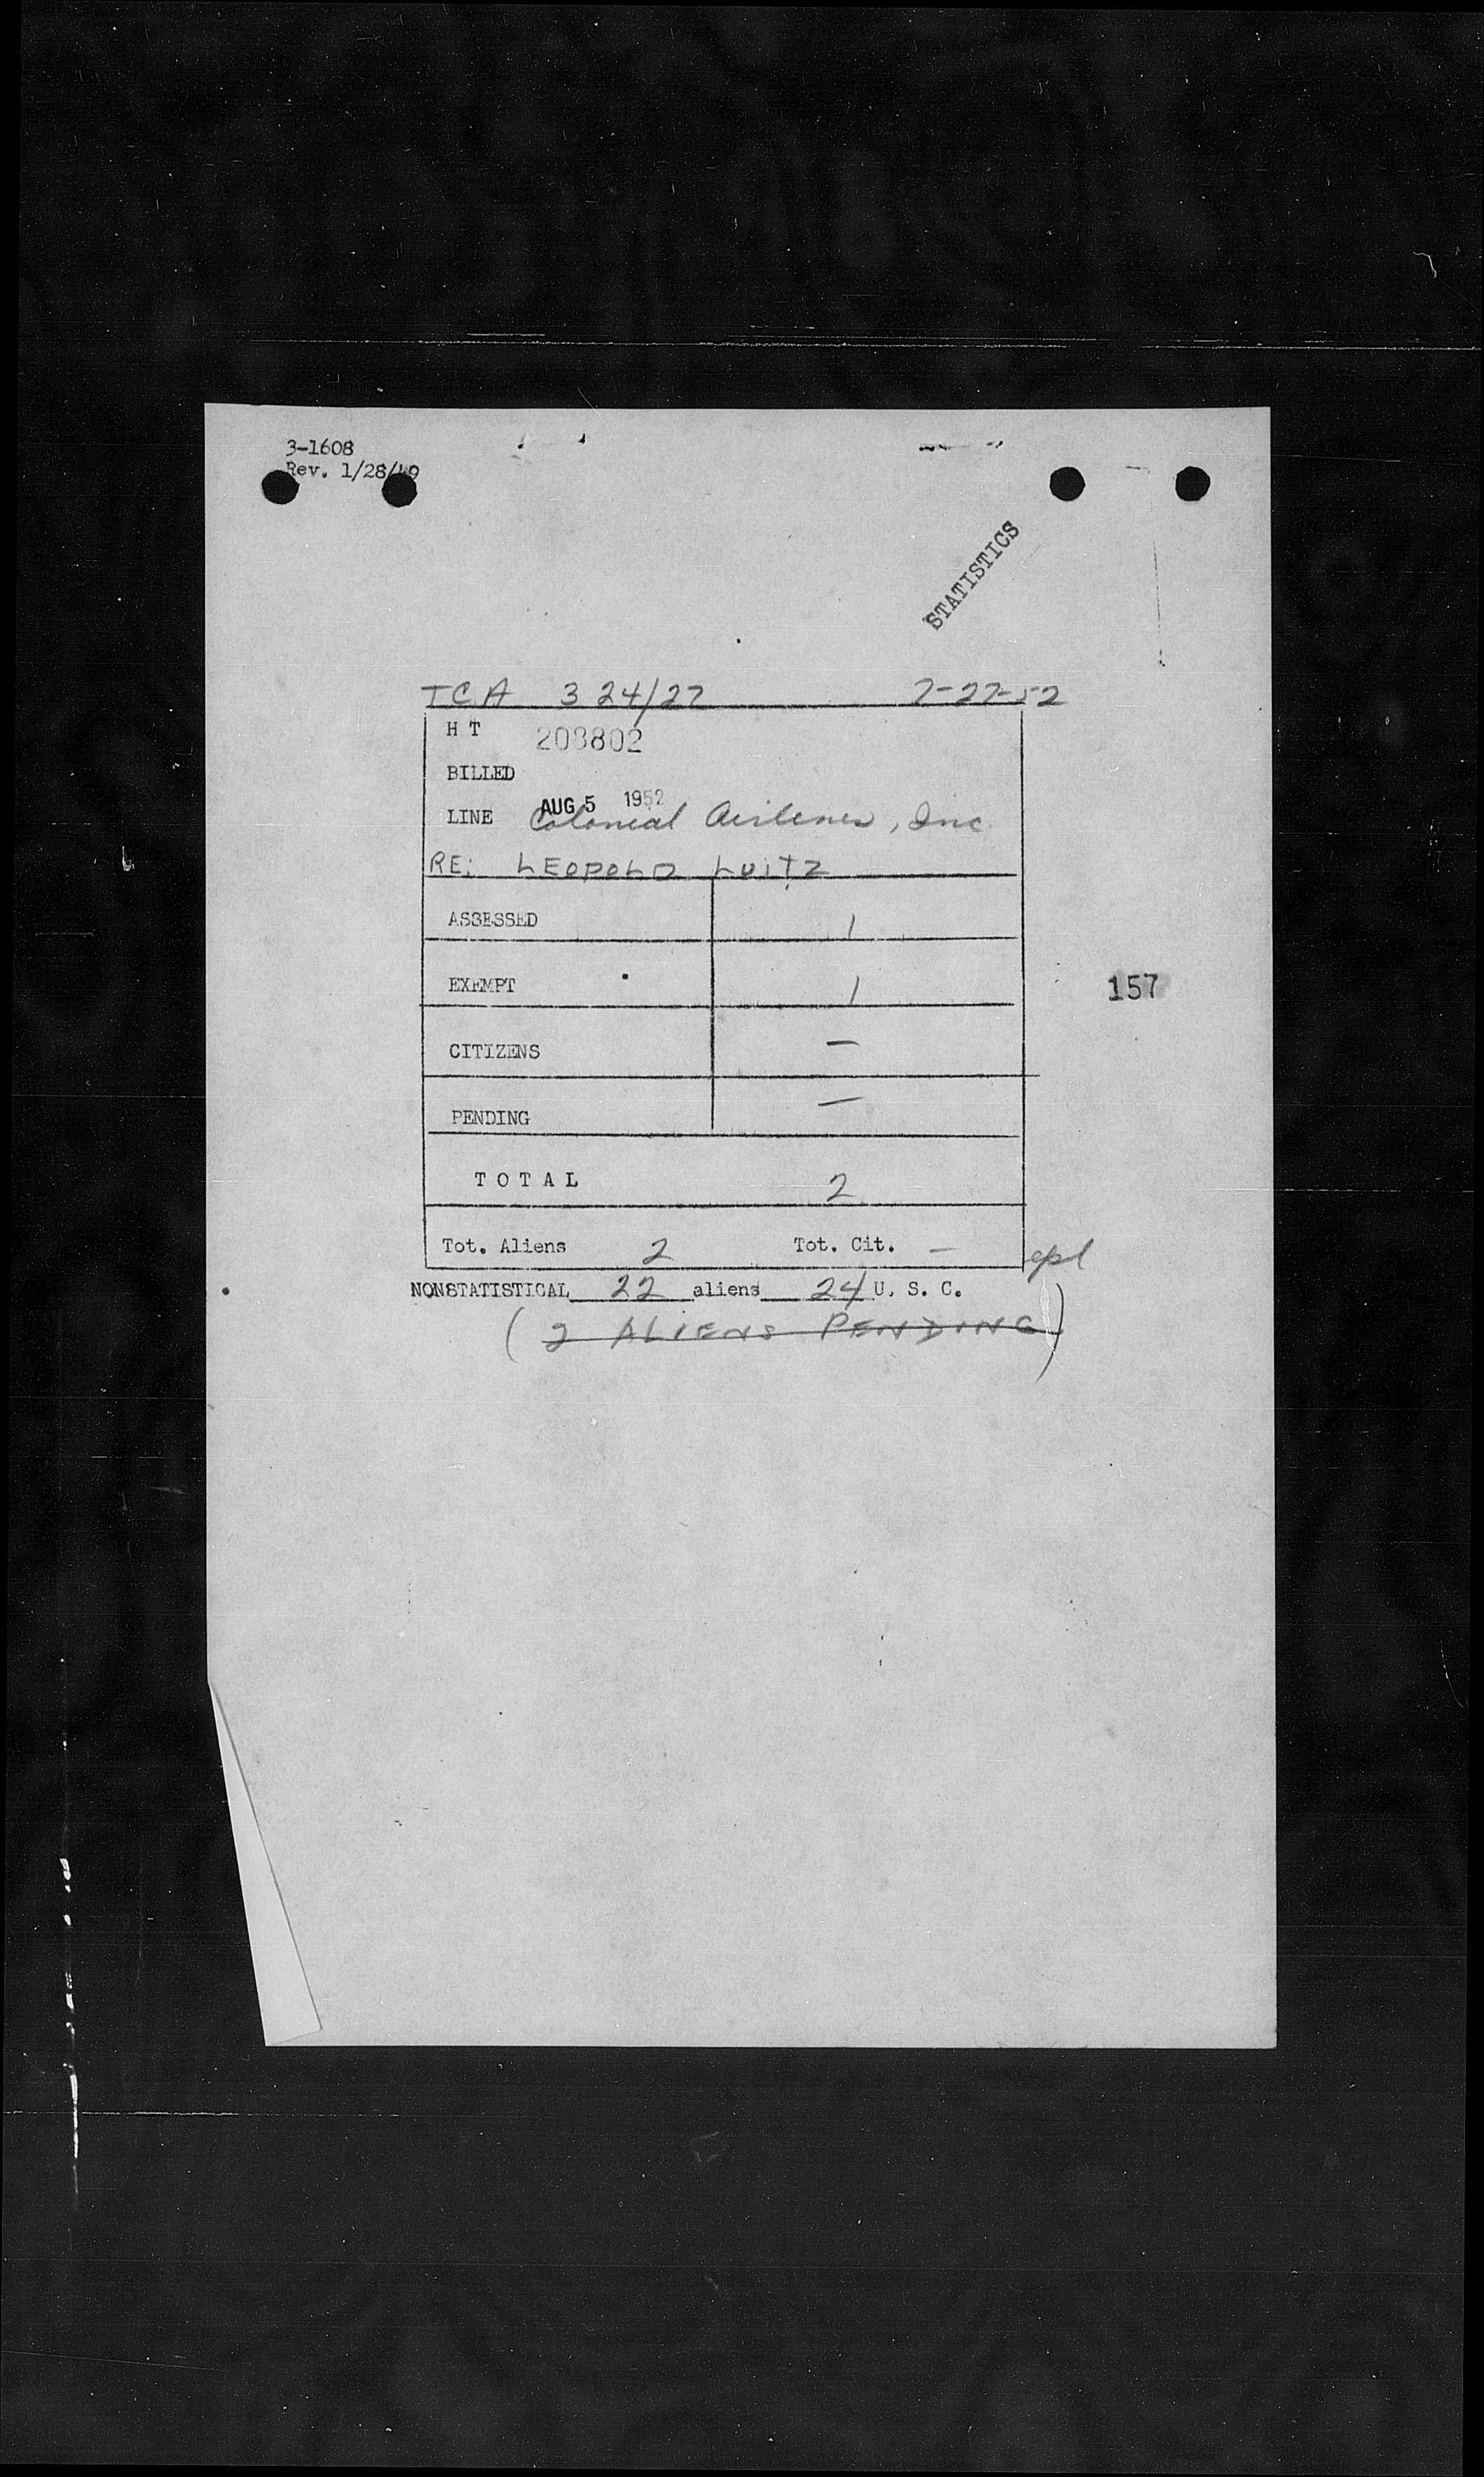 3-1608
Rev. 1/28/49
STATISTICS
TCA 324/27 7-27-52
H T 208802
BILLED
AUG 5 1952
LINE Colonial Airlines, Inc
RE: LEOPOLD LUITZ
ASSESSED 1
EXEMPT 1
157
CITIZENS —
PENDING —
T O T A L 2
Tot. Aliens 2 Tot. Cit. —
NONSTATISTICAL 22 aliens 24 U. S. C.
(2 ALIENS PENDING)